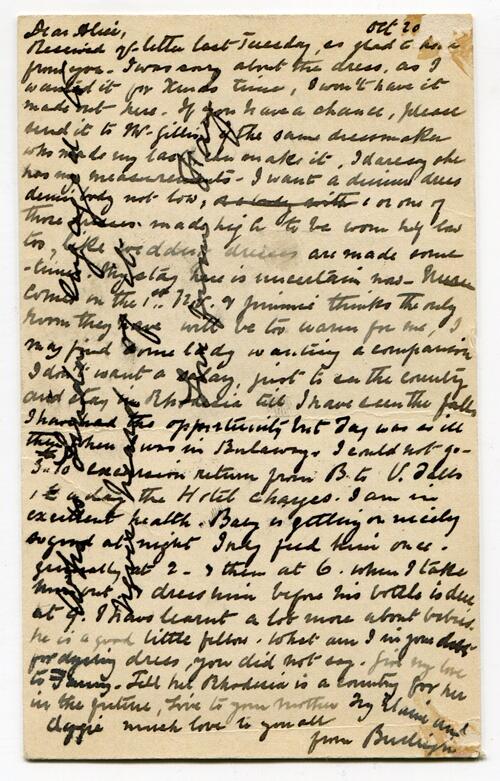 Dear Alice, Oct 20
Received yr letter last Tuesday, so glad to hear
from you. I was sorry about the dress, as I
wanted it for Xmas time, I won't have it
made out here. If you have a chance, please
send it to Mr the same dressmaker
who made my last can make it, I daresay she
has my measurements - I want a dinner dress
body not low, or one of
those made high to be worn
too, like wedding dresses are made some
-times. My stay here is uncertain now -
comes on the 1st Nov. & Jimmie thinks the only
room they have will be too warm for me, I
may find some lady wanting a companion
I don't want a salary, just to see the country
and stay in Rhodesia till I have seen the falls
I have had the opportunity but Fay was so ill
then when I was in Bulawayo I could not go -
excursion return from B to V. Falls
a day the Hotel charges. I am in
excellent health - Baby is getting on nicely
so good at night I only feed him once -
generally at 2 - & then at 6. when I take
him out, dress him before his bottle is due
at 9. I have learnt a lot more about babies.
he is a good little fellow. What am I in your debt
for dyeing dress, you did not say. Give my love
to Fanny. Tell her Rhodesia is a country for her
in the future, Love to your mother
much love to you all
from